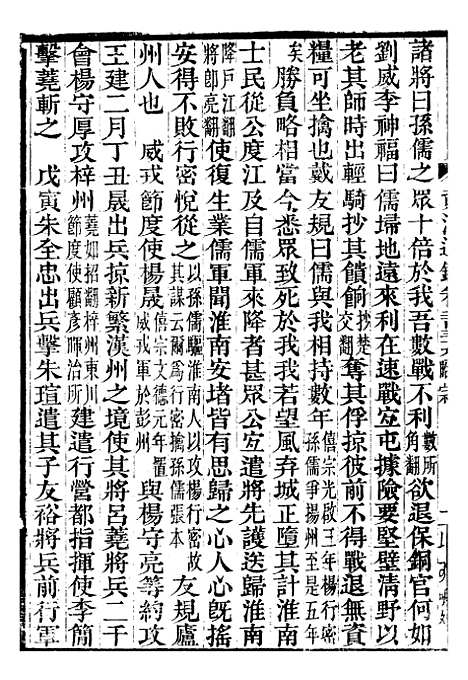 諸將曰孫儒之眾十倍於我吾數戰不利數所角翻欲退保銅官何如
劉威李神福曰儒掃地遠來利在速戰宜屯據險要堅壁清野以
老其師時出輕騎抄其饋餉抄楚交翻奪其俘掠彼前不得戰退無資
糧可坐擒也戴友規曰儒與我相持數年僖宗光啟三年楊行密孫儒爭揚州至是五年
矣勝負略相當今悉眾致死於我我若望風弃城正墮其計淮南
士民從公度江及自儒軍來降者甚眾公宜遣將先護送歸淮南
降戶江翻將即亮翻使復生業儒軍聞淮南安堵皆有思歸之心人心既搖
安得不敗行密悅從之以孫儒驅淮南人以攻楊行密故其謀云爾爲行密擒孫儒張本友規廬
州人也 威戎節度使楊晟僖宗文德元年置威戎軍於彭州與楊守亮等約攻
王建二月丁丑晟出兵掠新繁漢州之境使其將呂蕘將兵二千
會楊守厚攻梓州蕘如招翻梓州東川節度使顧彥暉治所建遣行營都指揮使李簡
擊蕘斬之 戊寅朱全忠出兵擊朱瑄遣其子友裕將兵前行軍